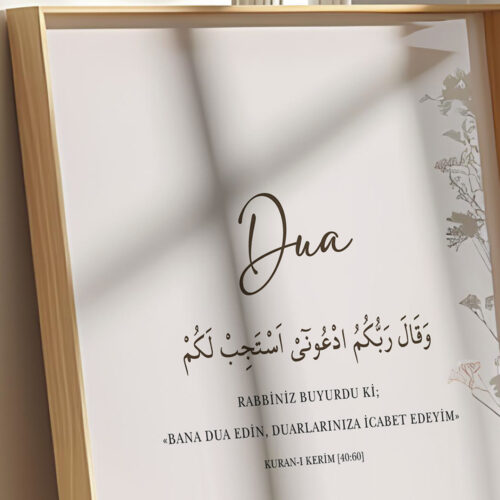 Dua
وَقَالَ رَبُّكُمُ ادْعُونَٓي اَسْتَجِبْ لَكُمْ
RABBİNİZ BUYURDU Kİ;
«BANA DUA EDİN, DUALARINIZA İCABET EDEYİM»
KURAN-I KERİM [40:60]